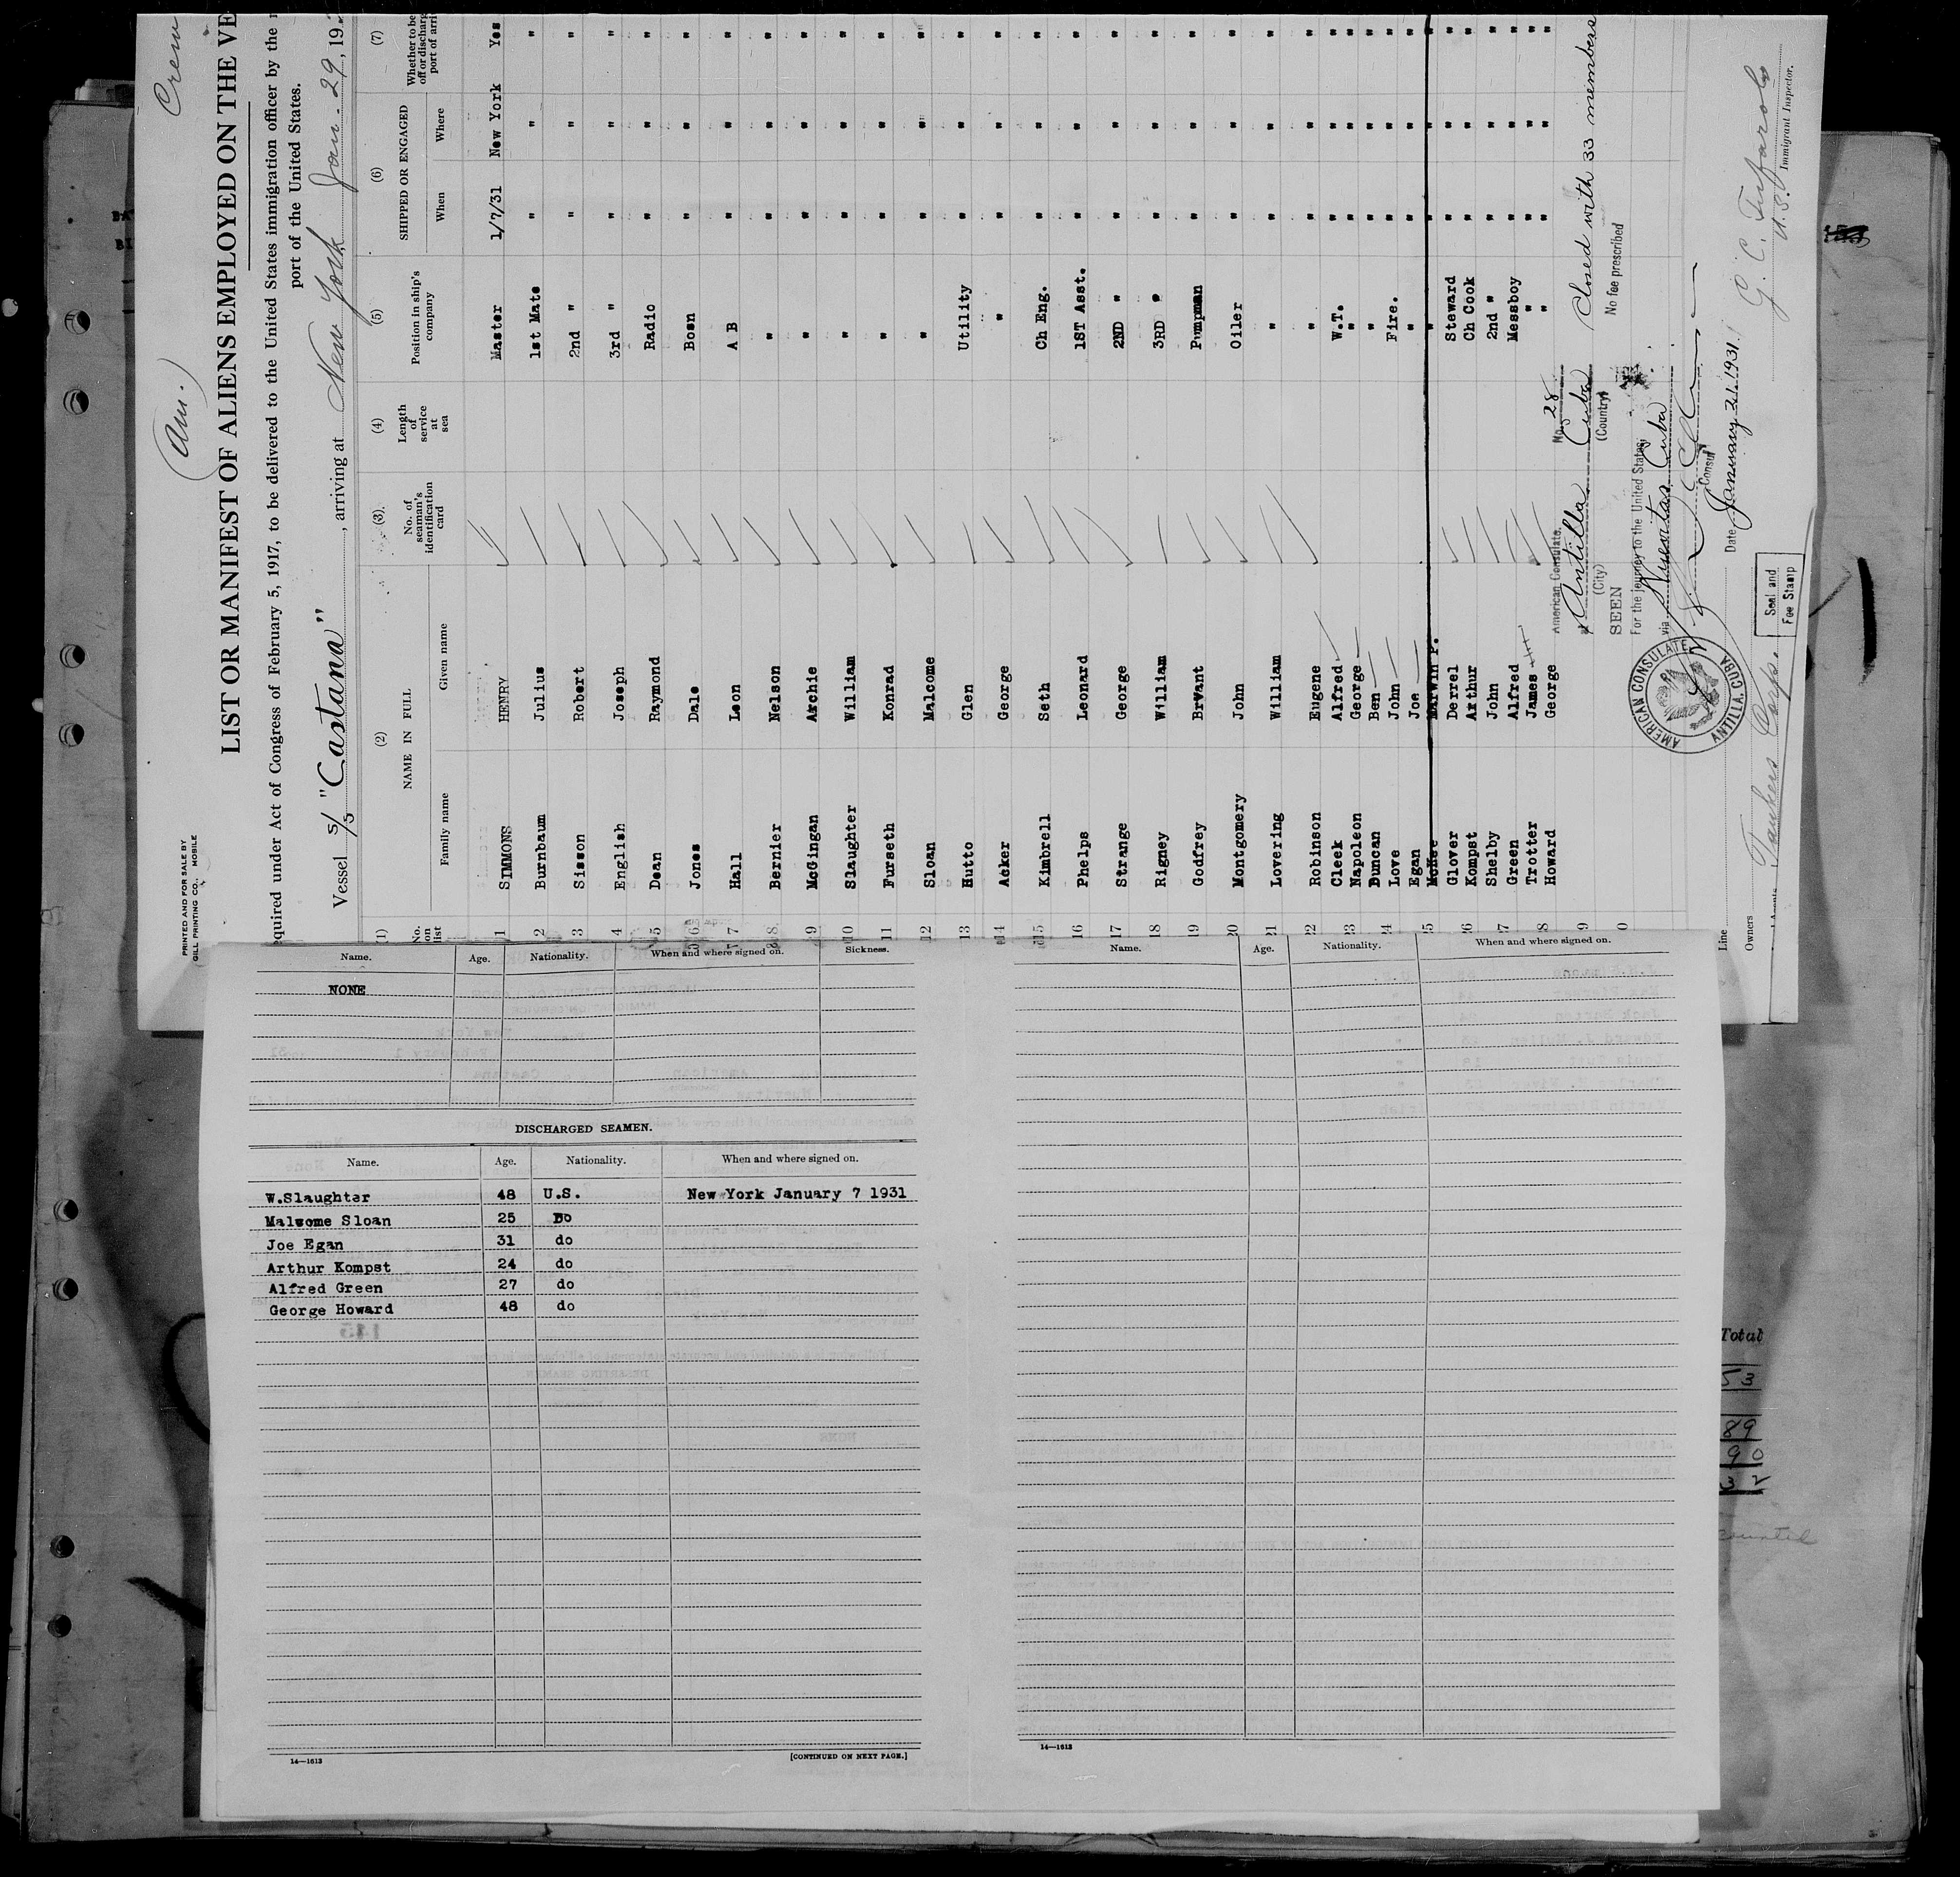 PRINTED AND FOR SALE BY
GILL PRINTING CO., MOBILE
Crew
(Am.)
LIST OR MANIFEST OF ALIENS EMPLOYED ON THE VE
equired under Act of Congress of February 5, 1917, to be delivered to the United States immigration officer by the
port of the United States.
Vessel S/S "Castana" , arriving at New York Jan. 29, 19
(1) (2) (3) (4) (5) (6) (7)
No. on list NAME IN FULL No. of seaman's identification card Length of service at sea Position in ship's company SHIPPED OR ENGAGED Whether to be off or discharg port of arri
Family name Given name When Where
1 SIMMONS HENRY Master 1/7/31 New York Yes
2 Burnbaum Julius 1st Mate " " "
3 Sisson Robert 2nd " " " "
4 English Joseph 3rd " " " "
5 Dean Raymond Radio " " "
6 Jones Dale Bosn " " "
7 Hall Leon A B " " "
8 Bernier Nelson " " " "
9 McGingan Archie " " " "
10 Slaughter William " " " "
11 Furseth Konrad " " " "
12 Sloan Malcome " " " "
13 Hutto Glen Utility " " "
14 Acker George " " " "
15 Kimbrell Seth Ch Eng. " " "
16 Phelps Leonard 1ST Asst. " " "
17 Strange George 2ND " " " "
18 Rigney William 3RD " " " "
19 Godfrey Bryant Pumpman " " "
20 Montgomery John Oiler " " "
21 Lovering William " " " "
22 Robinson Eugene " " " "
Cleek Alfred W.T. " " "
23 Napoleon George " " " "
Duncan Ben " " " "
24 Love John Fire. " " "
Egan Joe " " " "
25 McKee Marwin P. " " " "
Glover Derrel Steward " " "
26 Kompst Arthur Ch Cook " " "
27 Shelby John 2nd " " " "
Green Alfred Messboy " " "
28 Trotter James " " " "
Howard George " " " "
29
30
American Consulate. No. 28
Antilla Cuba
(City) (Country)
Closed with 33 members
SEEN No fee prescribed
For the journey to the United States
via Nuevitas, Cuba
Consul
Date January 21 1931
AMERICAN CONSULATE
ANTILLA, CUBA
Seal and
Fee Stamp
Line
Owners Tankers Corp.
U.S. Immigrant Inspector.
Name. Age. Nationality. When and where signed on. Sickness.
NONE
DISCHARGED SEAMEN.
Name. Age. Nationality. When and where signed on.
W.Slaughter 48 U.S. New York January 7 1931
Malcome Sloan 25 Do
Joe Egan 31 do
Arthur Kompst 24 do
Alfred Green 27 do
George Howard 48 do
14—1613 [CONTINUED ON NEXT PAGE.]
Name. Age. Nationality. When and where signed on.
14—1613
Total
53
89
90